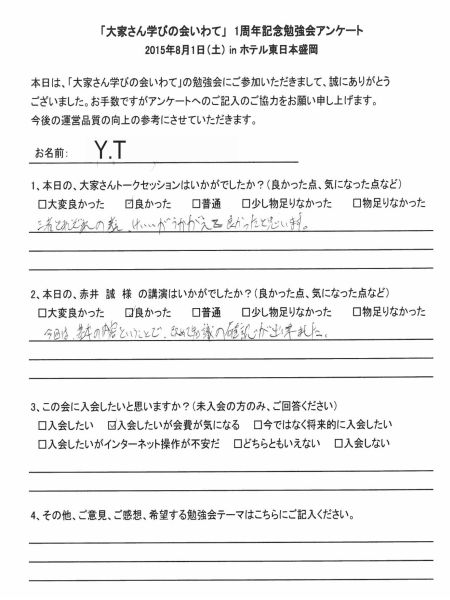 「大家さん学びの会いわて」 1周年記念勉強会アンケート
2015年8月1日(土) in ホテル東日本盛岡
本日は、「大家さん学びの会いわて」の勉強会にご参加いただきまして、誠にありがとう
ございました。お手数ですがアンケートへのご記入のご協力をお願い申し上げます。
今後の運営品質の向上の参考にさせていただきます。
お名前: Y.T
1、本日の、大家さんトークセッションはいかがでしたか?(良かった点、気になった点など)
□大変良かった ☑良かった □普通 □少し物足りなかった □物足りなかった
三者それぞれの がうかがえて良かったと思います。
2、本日の、赤井 誠 様 の講演はいかがでしたか?(良かった点、気になった点など)
□大変良かった ☑良かった □普通 □少し物足りなかった □物足りなかった
今回は、基本の内容ということで、改めて知識の確認が出来ました。
3、この会に入会したいと思いますか?(未入会の方のみ、ご回答ください)
□入会したい ☑入会したいが会費が気になる □今ではなく将来的に入会したい
□入会したいがインターネット操作が不安だ □どちらともいえない □入会しない
4、その他、ご意見、ご感想、希望する勉強会テーマはこちらにご記入ください。